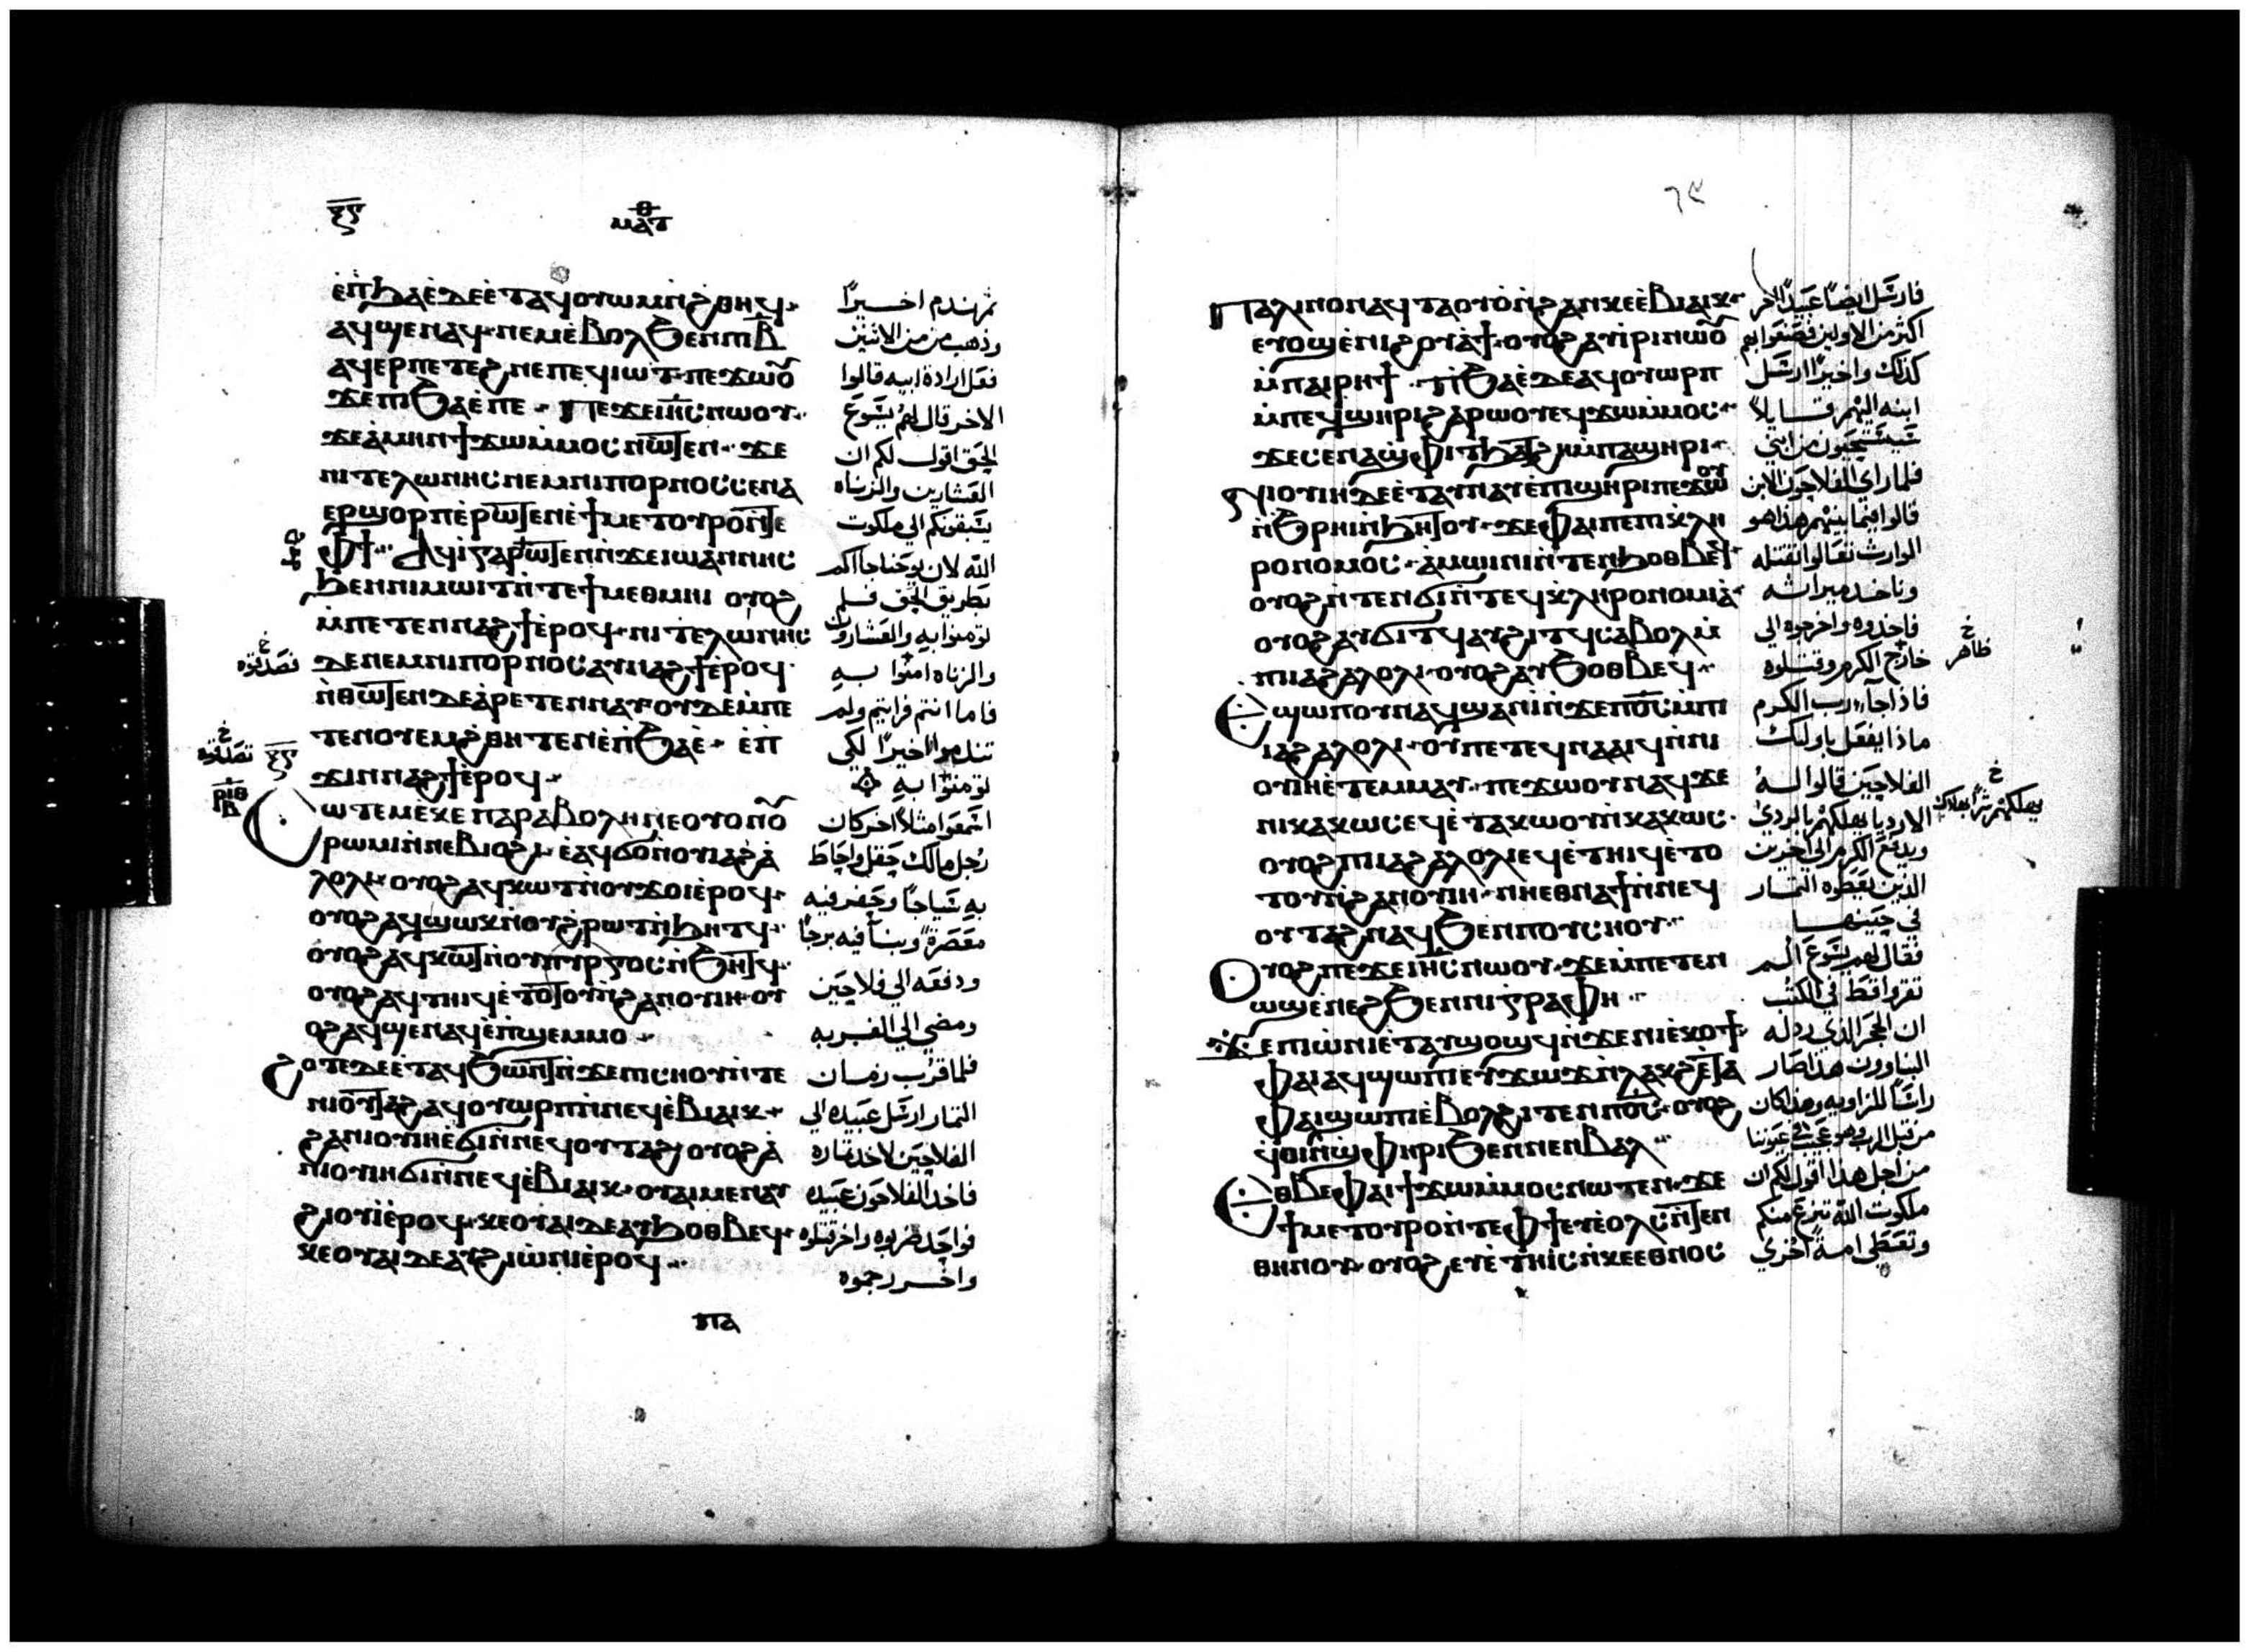 ⲝⲋ
ⲙⲁⲧ
ⲉⲡϧⲁⲉ ⲇⲉ ⲉⲧⲁϥⲟⲩⲱⲙ ⲛϩⲑⲏϥ
ⲁϥϣⲉⲛⲁϥ ⲛⲉⲙ ⲉⲃⲟⲗ ϧⲉⲛ ⲡⲓⲃ̅
ⲁϥⲉⲣ ⲡⲉⲧⲉϩⲛⲉ ⲡⲉϥⲓⲱⲧ ⲡⲉϫⲱⲟⲩ
ϫⲉ ⲡⲓϧⲁⲉ ⲡⲉ ⲡⲉϫⲉ ⲓⲏⲥ ⲛⲱⲟⲩ
ϫⲉ ⲁⲙⲏⲛ ϯϫⲱ ⲙⲙⲟⲥ ⲛⲱⲧⲉⲛ ϫⲉ
ⲛⲓⲧⲉⲗⲱⲛⲏⲥ ⲛⲉⲙ ⲛⲓⲡⲟⲣⲛⲟⲥ ⲥⲉⲛⲁ
ⲉⲣϣⲟⲣⲡ ⲉⲣⲱⲧⲉⲛ ⲉϯⲙⲉⲧⲟⲩⲣⲟ ⲛⲧⲉ
ⲫϯ ⲁϥⲓ ⲅⲁⲣ ϣⲁⲣⲱⲧⲉⲛ ⲛϫⲉ ⲓⲱⲁⲛⲛⲏⲥ
ϧⲉⲛ ⲛⲓⲙⲱⲓⲧ ⲛⲧⲉ ϯⲙⲉⲑⲙⲏⲓ ⲟⲩⲟϩ
ⲙⲡⲉⲧⲉⲛⲛⲁϩϯ ⲉⲣⲟϥ ⲛⲓⲧⲉⲗⲱⲛⲏⲥ
ⲇⲉ ⲛⲉⲙ ⲛⲓⲡⲟⲣⲛⲟⲥ ⲁⲩⲛⲁϩϯ ⲉⲣⲟϥ
ⲛⲑⲱⲧⲉⲛ ⲇⲉ ⲁⲣⲉⲧⲉⲛⲛⲁⲩ ⲟⲩⲇⲉ ⲙⲡⲉ
ⲧⲉⲛⲟⲩⲉⲙ ϩⲑⲏⲧⲉⲛ ⲉⲡϧⲁⲉ ⲉⲡ
ϫⲓⲛⲛⲁϩϯ ⲉⲣⲟϥ
ⲥⲱⲧⲉⲙ ⲕⲉ ⲡⲁⲣⲁⲃⲟⲗⲏ ⲛⲉ ⲟⲩⲟⲛ ⲟⲩ
ⲣⲱⲙⲓ ⲛⲛⲉⲃⲓⲟϩⲓ ⲉⲁϥϭⲟ ⲛⲟⲩⲓⲁϩⲁ
ⲗⲟⲗⲓ ⲟⲩⲟϩ ⲁϥⲕⲱϯ ⲛⲟⲩϫⲟⲓ ⲉⲣⲟϥ
ⲟⲩⲟϩ ⲁϥϣⲱⲕ ⲛⲟⲩϩⲣⲱⲧ ⲛϧⲏⲧϥ
ⲟⲩⲟϩ ⲁϥⲕⲱⲧ ⲛⲟⲩⲡⲩⲣⲅⲟⲥ ⲛϧⲏⲧϥ
ⲟⲩⲟϩ ⲁϥⲧⲏⲓϥ ⲉⲧⲟⲧⲟⲩ ⲛϩⲁⲛⲟⲩⲓⲏ ⲟⲩ
ⲟϩ ⲁϥϣⲉⲛⲁϥ ⲉⲡϣⲉⲙⲙⲟ
ϩⲟⲧⲉ ⲇⲉ ⲉⲧⲁϥϧⲱⲛⲧ ⲛϫⲉ ⲡⲓⲥⲛⲟⲩ ⲛⲧⲉ
ⲛⲓⲟⲩⲧⲁϩ ⲁϥⲟⲩⲱⲣⲡ ⲛⲛⲉϥⲉⲃⲓⲁⲓⲕ
ϩⲁ ⲛⲓⲟⲩⲓⲏ ⲉϭⲓ ⲛⲛⲉϥⲟⲩⲧⲁϩ ⲟⲩⲟϩ ⲁ
ⲛⲓⲟⲩⲓⲏ ϭⲓ ⲛⲛⲉϥⲉⲃⲓⲁⲓⲕ ⲟⲩⲁⲓ ⲙⲉⲛ ⲁⲩ
ϩⲓⲟⲩⲓ ⲉⲣⲟϥ ⲕⲉⲟⲩⲁⲓ ⲇⲉ ⲁⲩϧⲟⲑⲃⲉϥ
ⲕⲉⲟⲩⲁⲓ ⲇⲉ ⲁⲩϩⲓⲱⲛⲓ ⲉⲣⲟϥ
ثم ندم اخيرًا
وذهب من من الاثنين
فعل ارادة ابيه قالوا
الاخر قال لهم يسوع
الحق اقول لكم ان
العشارين والزناه
يسبقونكم الي ملكوت
الله لان يوحنا جاآكم
بطريق الحق فلم
تومنوا به والعشارون
والزناه امنوا به
فاما انتم فرايتم ولم
تندموا اخيرًا لكي
تومنوا به
اسمعوا مثلاً اخر كان
رجل مالك حقل واحاط
به سياجًا وحفر فيه
معصرة وبنا فيه برجًا
ودفعه الي فلاحين
ومضي الي الغربه
فلما قرب زمان
الثمار ارسل عبيده الي
الفلاحين لاخد ثماره
فاخد الفلاحون عبيده
فواحد ضربوه واخر قتلوه
واخر رجموه
ⲡⲁ
ⲡⲁⲗⲓⲛ ⲟⲛ ⲁϥⲧⲁⲟⲩⲟ ⲛϩⲁⲛⲕⲉⲉⲃⲓⲁⲓⲕ
ⲉⲩⲟϣ ⲉⲛⲓϩⲟⲩⲁϯ ⲟⲩⲟϩ ⲁⲩⲓⲣⲓ ⲛⲱⲟⲩ
ⲙⲡⲁⲓⲣⲏϯ ⲉⲡϧⲁⲉ ⲇⲉ ⲁϥⲟⲩⲱⲣⲡ
ⲙⲡⲉϥϣⲏⲣⲓ ϩⲁⲣⲱⲟⲩ ⲉϥϫⲱ ⲙⲙⲟⲥ
ϫⲉ ⲥⲉⲛⲁϣⲫⲓⲧ ϧⲁⲧϩⲏ ⲙⲡⲁϣⲏⲣⲓ
ⲛⲓⲟⲩⲓⲏ ⲇⲉ ⲉⲧⲁⲩⲛⲁⲩ ⲉⲡⲓϣⲏⲣⲓ ⲡⲉϫⲱⲟⲩ
ⲛϩⲣⲏⲓ ⲛϧⲏⲧⲟⲩ ϫⲉ ⲫⲁⲓ ⲡⲉ ⲡⲓⲕⲗⲏ
ⲣⲟⲛⲟⲙⲟⲥ ⲁⲙⲱⲓⲛⲓ ⲛⲧⲉⲛϧⲟⲑⲃⲉϥ
ⲟⲩⲟϩ ⲛⲧⲉⲛϭⲓ ⲛⲧⲉϥⲕⲗⲏⲣⲟⲛⲟⲙⲓⲁ
ⲟⲩⲟϩ ⲁⲩϭⲓⲧϥ ⲁⲩϩⲓⲧϥ ⲥⲁⲃⲟⲗ ⲙ
ⲡⲓⲓⲁϩⲁⲗⲟⲗⲓ ⲟⲩⲟϩ ⲁⲩϧⲟⲑⲃⲉϥ
ⲉϣⲱⲡ ⲟⲩⲛ ⲁϥϣⲁⲛⲓ ⲛϫⲉ ⲡⲟⲥ ⲙⲡⲓ
ⲓⲁϩⲁⲗⲟⲗⲓ ⲟⲩ ⲡⲉⲧⲉϥⲛⲁⲁⲓϥ ⲛⲛⲓ
ⲟⲩⲓⲏ ⲉⲧⲉⲙⲙⲁⲩ ⲡⲉϫⲱⲟⲩ ⲛⲁϥ ϫⲉ
ⲛⲓⲕⲁⲕⲱⲥ ⲉϥⲉⲧⲁⲕⲱⲟⲩ ⲛⲕⲁⲕⲱⲥ
ⲟⲩⲟϩ ⲡⲓⲓⲁϩⲁⲗⲟⲗⲓ ⲉϥⲉⲧⲏⲓϥ ⲉⲧⲟ
ⲧⲟⲩ ⲛϩⲁⲛⲟⲩⲓⲏ ⲛⲏⲉⲑⲛⲁϯ ⲛⲛⲉϥ
ⲟⲩⲧⲁϩ ⲛⲁϥ ϧⲉⲛ ⲡⲟⲩⲥⲛⲟⲩ
ⲟⲩⲟϩ ⲡⲉϫⲉ ⲓⲏⲥ ⲛⲱⲟⲩ ϫⲉ ⲙⲡⲉⲧⲉⲛ
ⲱϣ ⲉⲛⲉϩ ϧⲉⲛ ⲛⲓⲅⲣⲁⲫⲏ
ϫⲉ ⲡⲓⲱⲛⲓ ⲉⲧⲁⲩϣⲟϣϥ ⲛϫⲉ ⲛⲓⲉⲕⲟϯ
ⲫⲁⲓ ⲁϥϣⲱⲡⲓ ⲉⲩϫⲱϫ ⲛⲗⲁⲕϩ ⲉⲧⲁ
ⲫⲁⲓ ϣⲱⲡⲓ ⲉⲃⲟⲗ ϩⲓⲧⲉⲛ ⲡⲟⲥ ⲟⲩⲟϩ
ϥⲟⲓ ⲛϣⲫⲏⲣⲓ ϧⲉⲛ ⲛⲉⲛⲃⲁⲗ
ⲉⲑⲃⲉ ⲫⲁⲓ ϯϫⲱ ⲙⲙⲟⲥ ⲛⲱⲧⲉⲛ ϫⲉ
ϯⲙⲉⲧⲟⲩⲣⲟ ⲛⲧⲉ ⲫϯ ⲉⲩⲉⲟⲗⲥ ⲛⲧⲉⲛ
ⲑⲏⲛⲟⲩ ⲟⲩⲟϩ ⲉⲩⲉⲧⲏⲓⲥ ⲛⲕⲉⲉⲑⲛⲟⲥ
فارسل ايضًا عبيدًا اخر
اكثر من الاولين فصنعوا بهم
كذلك واخيرًا ارسل
ابنه اليهم قايلاً
سيستحيون من ابني
فلما راي الفلاحون الابن
قالوا فيما بينهم هذا هو
الوارث تعالوا نقتله
وناخد ميراثه
فاخذوه واخرجوه الي
خارج الكرم وقتلوه
فاذا جآء رب الكرم
ماذا يفعل باوليك
الفلاحين قالوا له
الارديا يهلكهم بالردي
ويدفع الكرم الي اخرين
الذين يعطوه الثمار
في حينها
فقال لهم يسوع الم
تقروا قط في الكتب
ان الحجر الذي رذله
البناوون هذا صار
راسًا للزاويه وهذا كان
من قبل الرب وهو عجيب في عيوننا
من اجل هذا اقول لكم ان
ملكوت الله تنزع منكم
وتعطي امة اخري